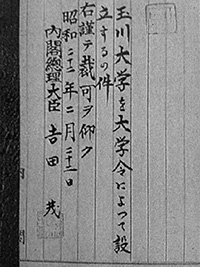 玉川大学を大学令によつて設
立するの件
右謹テ裁可ヲ仰ク
昭和二十二年二月二十一日
内閣總理大臣 吉田 茂